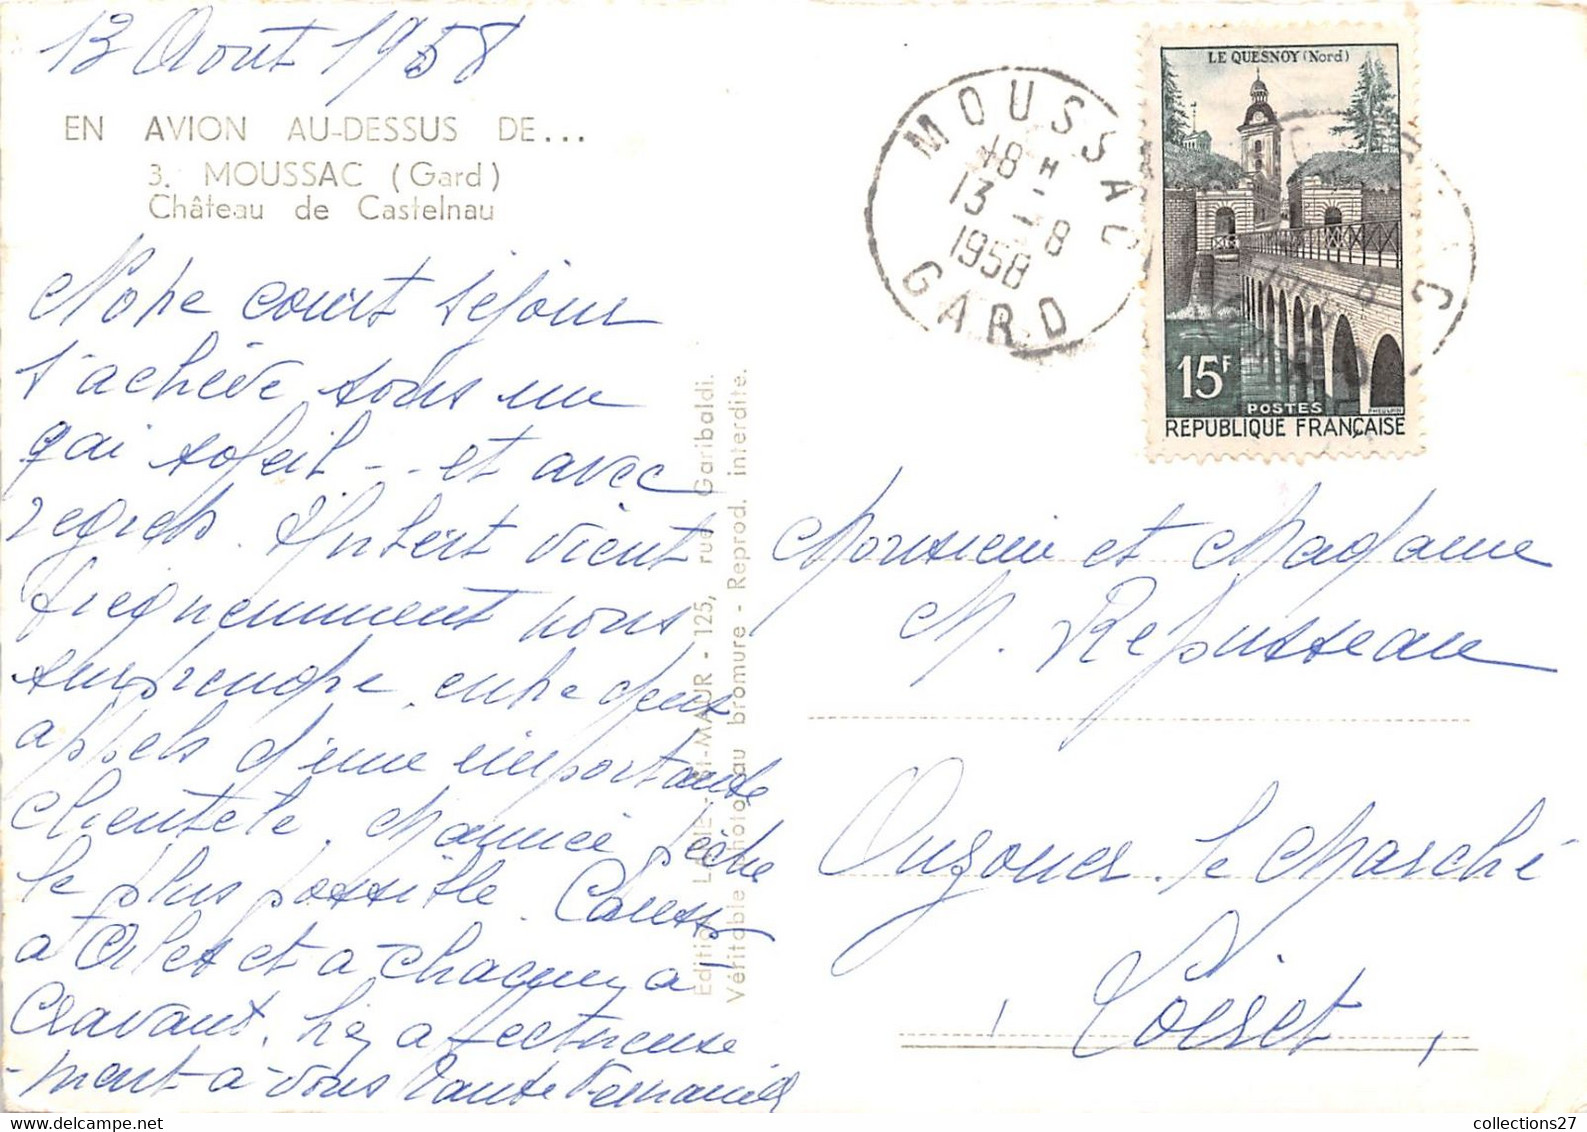 13 Aout 1958
EN AVION AU-DESSUS DE...
3. MOUSSAC (Gard)
Château de Castelnau
Notre court séjour
s'achève sous un
gai soleil -- et avec
regrets. Hubert vient
fréquemment nous
surprendre, entre deux
appels d'une importante
clientèle. Maurice pêche
le plus possible.
à Arles et à chacun, à
Cravant, très affectueuse
-ment à vous Tante
Editions LAPIE - ST-MAUR - 125, rue Garibaldi.
Véritable photo au bromure - Reprod. interdite.
MOUSSAC
18 H
13 - 8
1958
GARD
LE QUESNOY (Nord)
15F
POSTES
REPUBLIQUE FRANÇAISE
Monsieur et Madame
M. Repusseau
Ouzouer-le-Marché
Loiret
collections27